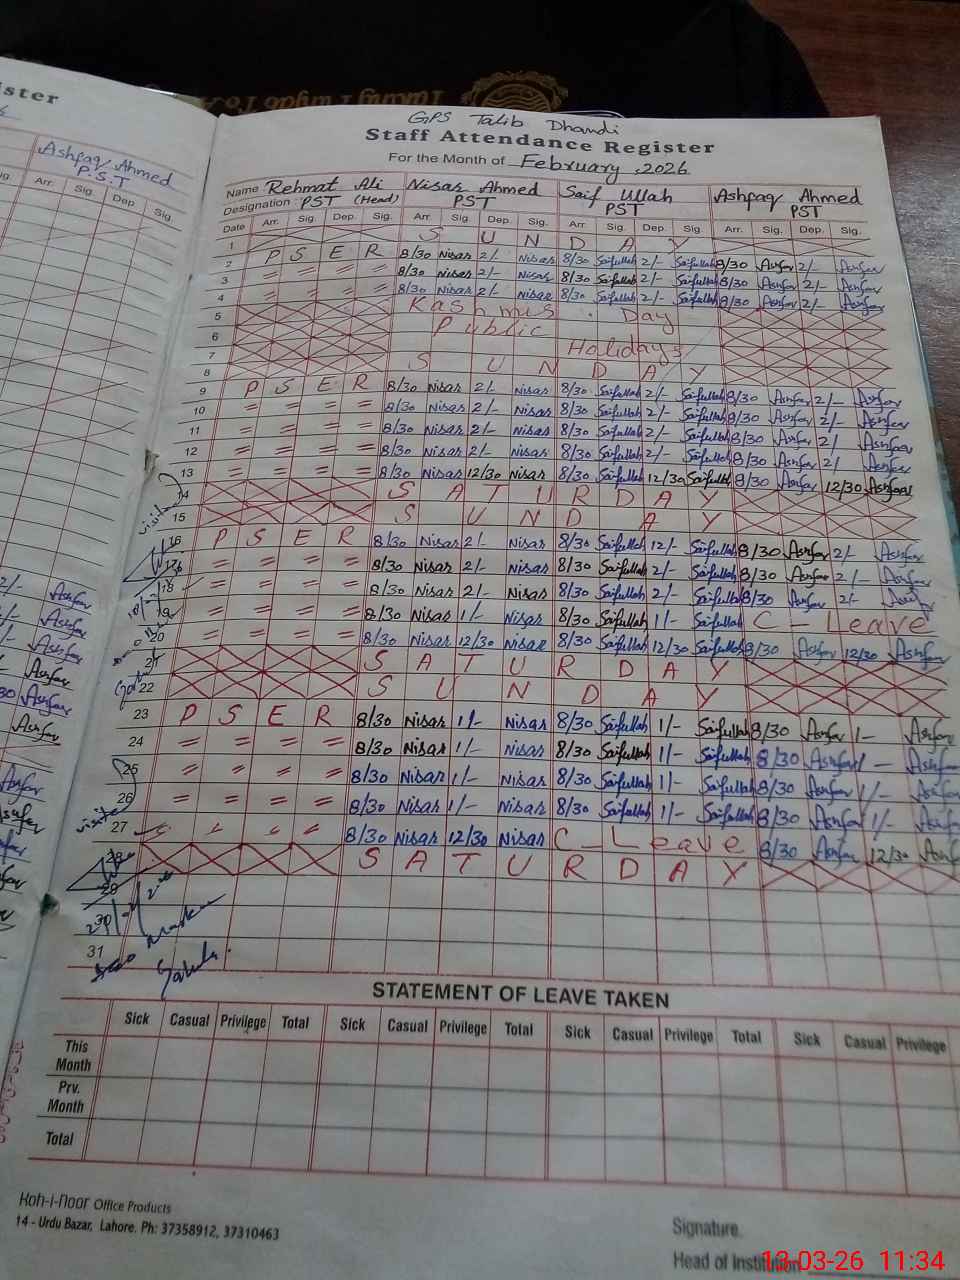 GPS Talib Dhandi
Staff Attendance Register
For the Month of February, 2026
Name Rehmat Ali Nisar Ahmed Saif Ullah Ashfaq Ahmed
Designation PST (Head) PST PST PST
Date Arr. Sig. Dep. Sig. Arr. Sig. Dep. Sig. Arr. Sig. Dep. Sig. Arr. Sig. Dep. Sig.
1 S U N D A Y
2 P S E R 8/30 Nisar 2/- Nisar 8/30 Saifullah 2/- Saifullah 8/30 Asnfav 2/- Asnfav
3 = = = = 8/30 Nisar 2/- Nisar 8/30 Saifullah 2/- Saifullah 8/30 Asnfav 2/- Asnfav
4 = = = = 8/30 Nisar 2/- Nisar 8/30 Saifullah 2/- Saifullah 8/30 Asnfav 2/- Asnfav
5 Kashmir Day
6 Public
7 Holidays
8 S U N D A Y
9 P S E R 8/30 Nisar 2/- Nisar 8/30 Saifullah 2/- Saifullah 8/30 Asnfav 2/- Asnfav
10 = = = = 8/30 Nisar 2/- Nisar 8/30 Saifullah 2/- Saifullah 8/30 Asnfav 2/- Asnfav
11 = = = = 8/30 Nisar 2/- Nisar 8/30 Saifullah 2/- Saifullah 8/30 Asnfav 2/ Asnfav
12 = = = = 8/30 Nisar 2/- Nisar 8/30 Saifullah 2/- Saifullah 8/30 Asnfav 2/ Asnfav
13 = = = = 8/30 Nisar 12/30 Nisar 8/30 Saifullah 12/30 Saifullah 8/30 Asnfav 12/30 Asnfav
14 S A T U R D A Y
15 S U N D A Y
16 P S E R 8/30 Nisar 2/- Nisar 8/30 Saifullah 12/- Saifullah 8/30 Asnfav 2/- Asnfav
= = = = 8/30 Nisar 2/- Nisar 8/30 Saifullah 2/- Saifullah 8/30 Asnfav 2/- Asnfav
18 = = = = 8/30 Nisar 2/- Nisar 8/30 Saifullah 2/- Saifullah 8/30 Asnfav 2/-
19 = = = = 8/30 Nisar 1/- Nisar 8/30 Saifullah 1/- Saifullah C - Leave
20 = = = = 8/30 Nisar 12/30 Nisar 8/30 Saifullah 12/30 Saifullah 8/30 Asnfav 12/30 Asnfav
21 S A T U R D A Y
22 S U N D A Y
23 P S E R 8/30 Nisar 1/- Nisar 8/30 Saifullah 1/- Saifullah 8/30 Asnfav 1- Asnfav
24 = = = = 8/30 Nisar 1/- Nisar 8/30 Saifullah 1/- Saifullah 8/30 Asnfav 1- Asnfav
25 = = = = 8/30 Nisar 1/- Nisar 8/30 Saifullah 1/- Saifullah 8/30 Asnfav 1/- Asnfav
26 = = = = 8/30 Nisar 1/- Nisar 8/30 Saifullah 1/- Saifullah 8/30 Asnfav 1/- Asnfav
27 8/30 Nisar 12/30 Nisar C - Leave 8/30 Asnfav 12/30
28 S A T U R D A Y
29
30
31
STATEMENT OF LEAVE TAKEN
Sick Casual Privilege Total Sick Casual Privilege Total Sick Casual Privilege Total Sick Casual Privilege
This Month
Prv. Month
Total
Koh-i-noor Office Products
14 - Urdu Bazar, Lahore. Ph: 37358912, 37310463
Signature
Head of Institution
13-03-26 11:34
Ashfaq Ahmed
P.S.T
Arr. Sig. Dep. Sig.